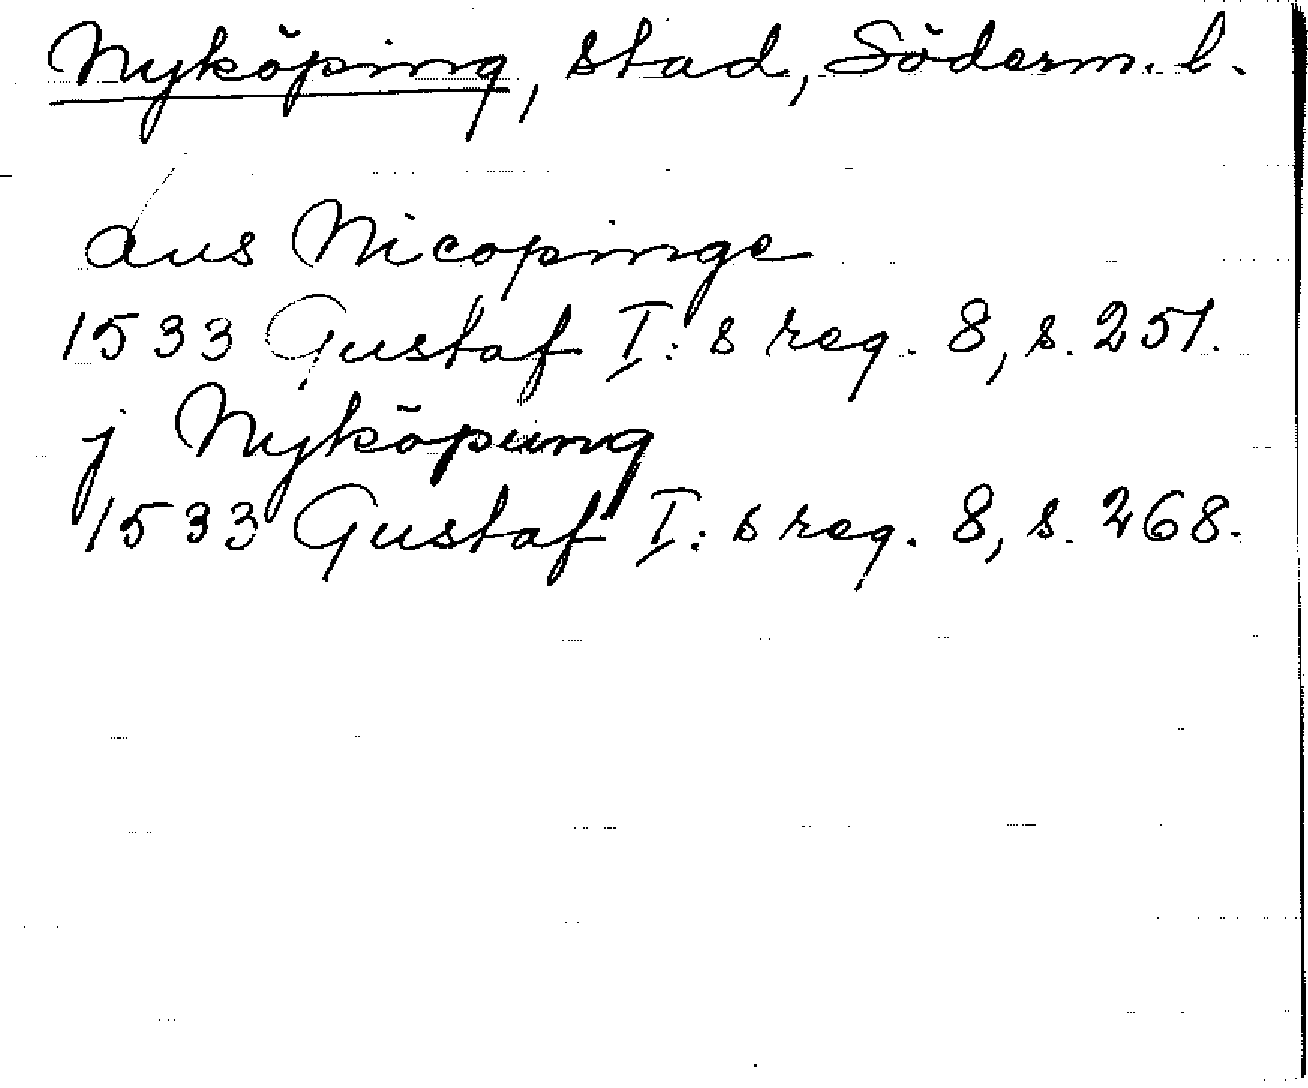 Nyköping, stad, Söderm. l.
aus Nicopinge
1533 Gustaf I:s reg. 8, s. 251.
j Nyköpung
1533 Gustaf I:s reg. 8, s. 268.